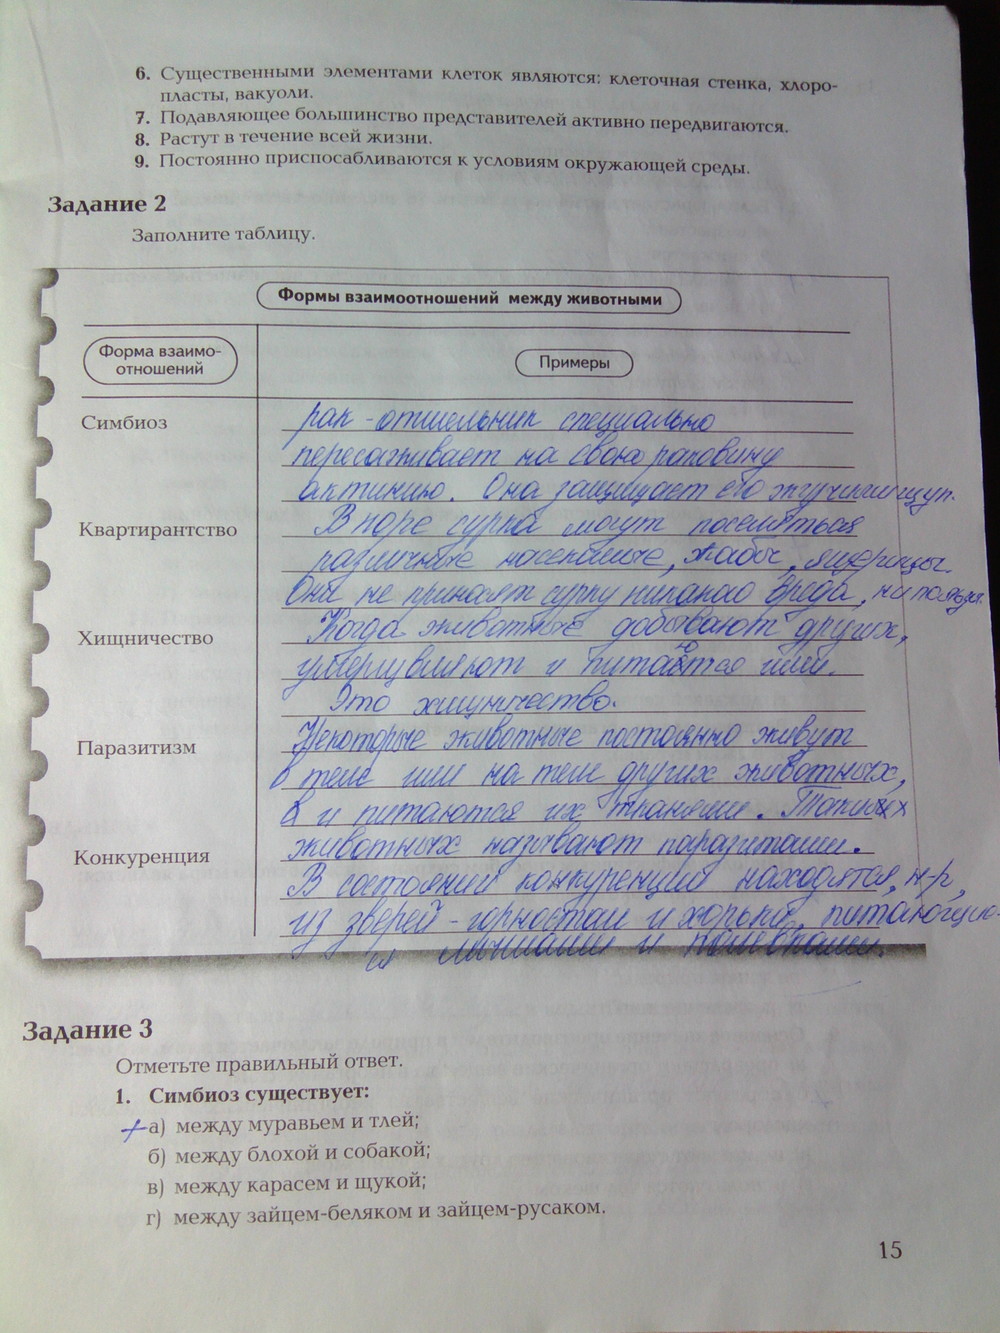 6. Существенными элементами клеток являются: клеточная стенка, хлоро-
пласты, вакуоли.
7. Подавляющее большинство представителей активно передвигаются.
8. Растут в течение всей жизни.
9. Постоянно приспосабливаются к условиям окружающей среды.
Задание 2
Заполните таблицу.
Формы взаимоотношений между животными
Форма взаимо-
отношений
Примеры
Симбиоз
рак-отшельник специально
пересаживает на свою раковину
актинию. Она защищает его жгучими щуп.
Квартирантство
В норе сурка могут поселиться
различные насекомые, жабы, ящерицы.
Они не приносят сурку никакого вреда, ни пользы.
Хищничество
Когда животные добывают других,
умерщвляют и питаются ими.
Это хищничество.
Паразитизм
Некоторые животные постоянно живут
в теле или на теле других животных,
и питаются их тканями. Таких
животных называют паразитами.
Конкуренция
В состоянии конкуренции находятся, н-р,
из зверей - горностай и хорька, питающие-
ся мышами и полёвками.
Задание 3
Отметьте правильный ответ.
1. Симбиоз существует:
+ а) между муравьем и тлей;
б) между блохой и собакой;
в) между карасем и щукой;
г) между зайцем-беляком и зайцем-русаком.
15